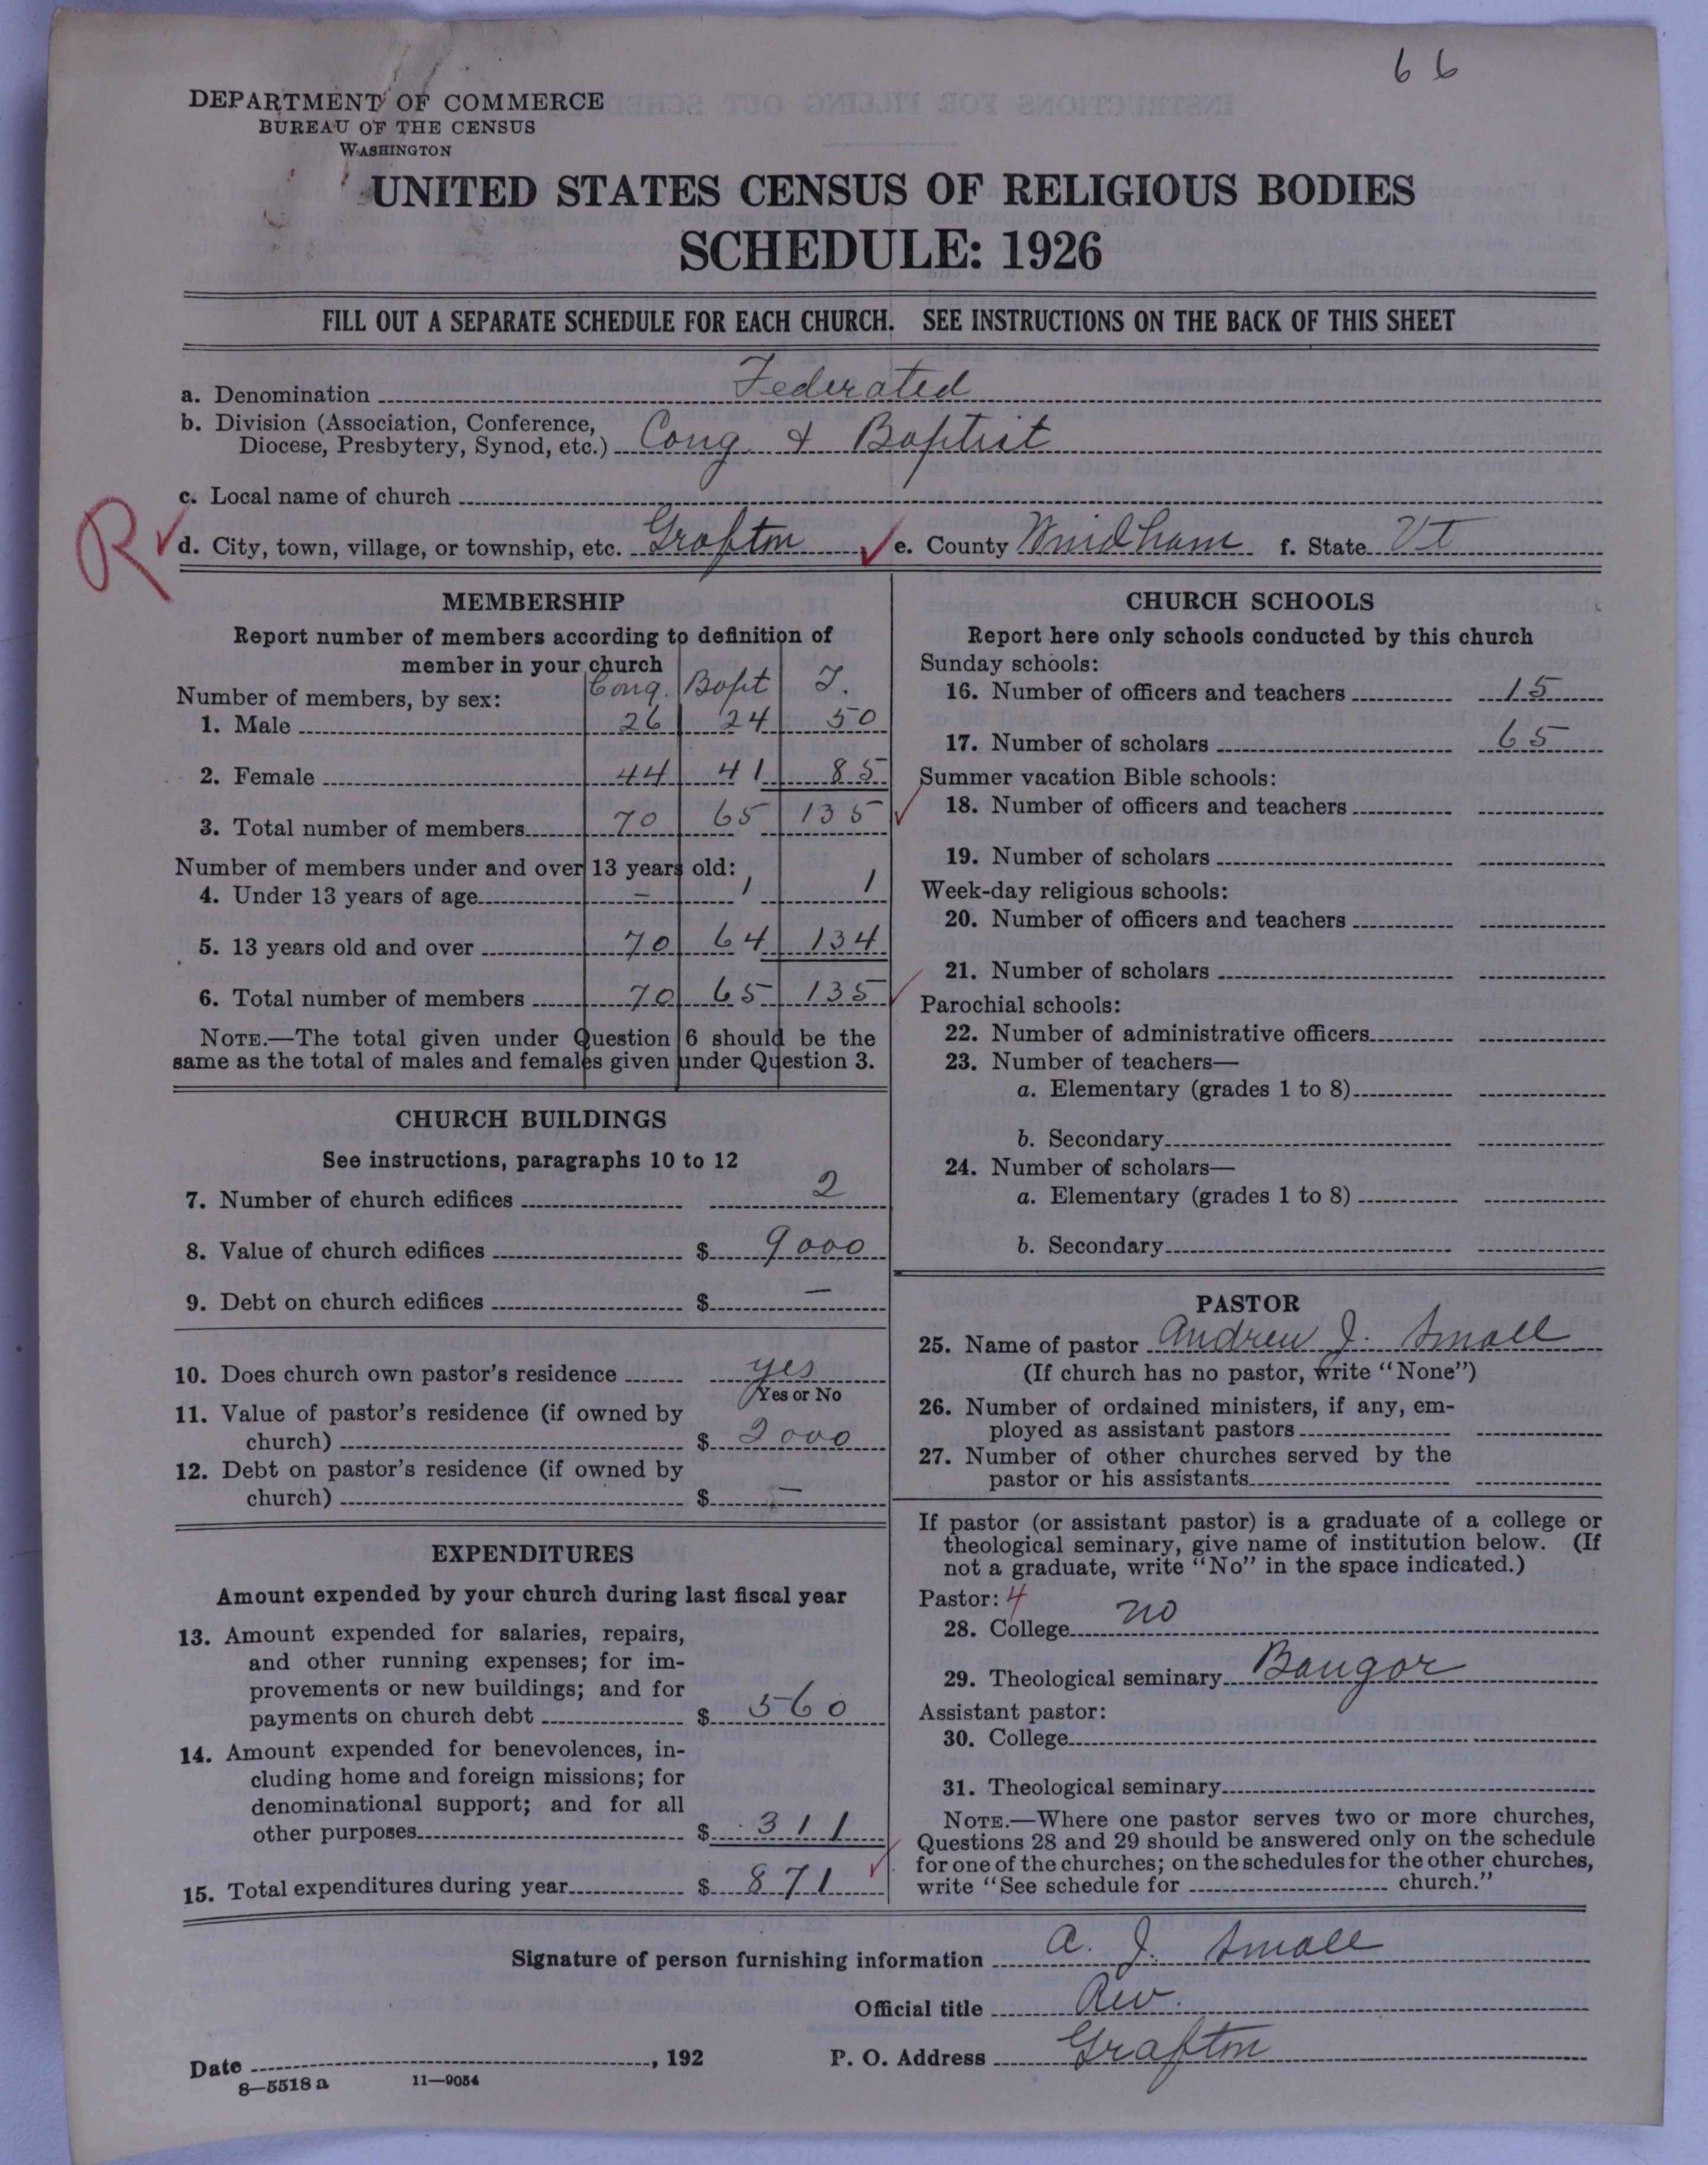 66
DEPARTMENT OF COMMERCE
BUREAU OF THE CENSUS
WASHINGTON
UNITED STATES CENSUS OF RELIGIOUS BODIES
SCHEDULE: 1926
FILL OUT A SEPARATE SCHEDULE FOR EACH CHURCH. SEE INSTRUCTIONS ON THE BACK OF THIS SHEET
a. Denomination Federated
b. Division (Association, Conference,
Diocese, Presbytery, Synod, etc.) Cong & Baptist
c. Local name of church
R
d. City, town, village, or township, etc. Grafton e. County Windham f. State Vt
MEMBERSHIP
Report number of members according to definition of
member in your church
Number of members, by sex: Cong. Bapt T.
1. Male 26 24 50
2. Female 44 41 85
3. Total number of members 70 65 135
Number of members under and over 13 years old:
4. Under 13 years of age - 1 1
5. 13 years old and over 70 64 134
6. Total number of members 70 65 135
NOTE.—The total given under Question 6 should be the
same as the total of males and females given under Question 3.
CHURCH BUILDINGS
See instructions, paragraphs 10 to 12
7. Number of church edifices 2
8. Value of church edifices $ 9000
9. Debt on church edifices $ —
10. Does church own pastor's residence yes
Yes or No
11. Value of pastor's residence (if owned by
church) $ 2000
12. Debt on pastor's residence (if owned by
church) $ —
EXPENDITURES
Amount expended by your church during last fiscal year
13. Amount expended for salaries, repairs,
and other running expenses; for im-
provements or new buildings; and for
payments on church debt $ 560
14. Amount expended for benevolences, in-
cluding home and foreign missions; for
denominational support; and for all
other purposes $ 311
15. Total expenditures during year $ 871
CHURCH SCHOOLS
Report here only schools conducted by this church
Sunday schools:
16. Number of officers and teachers 15
17. Number of scholars 65
Summer vacation Bible schools:
18. Number of officers and teachers
19. Number of scholars
Week-day religious schools:
20. Number of officers and teachers
21. Number of scholars
Parochial schools:
22. Number of administrative officers
23. Number of teachers—
a. Elementary (grades 1 to 8)
b. Secondary
24. Number of scholars—
a. Elementary (grades 1 to 8)
b. Secondary
PASTOR
25. Name of pastor Andrew J. Small
(If church has no pastor, write "None")
26. Number of ordained ministers, if any, em-
ployed as assistant pastors
27. Number of other churches served by the
pastor or his assistants
If pastor (or assistant pastor) is a graduate of a college or
theological seminary, give name of institution below. (If
not a graduate, write "No" in the space indicated.)
Pastor: 4
28. College no
29. Theological seminary Bangor
Assistant pastor:
30. College
31. Theological seminary
NOTE.—Where one pastor serves two or more churches,
Questions 28 and 29 should be answered only on the schedule
for one of the churches; on the schedules for the other churches,
write "See schedule for church."
Signature of person furnishing information A. J. Small
Official title Rev.
Date , 192 P. O. Address Grafton
8—5518 a 11—9054